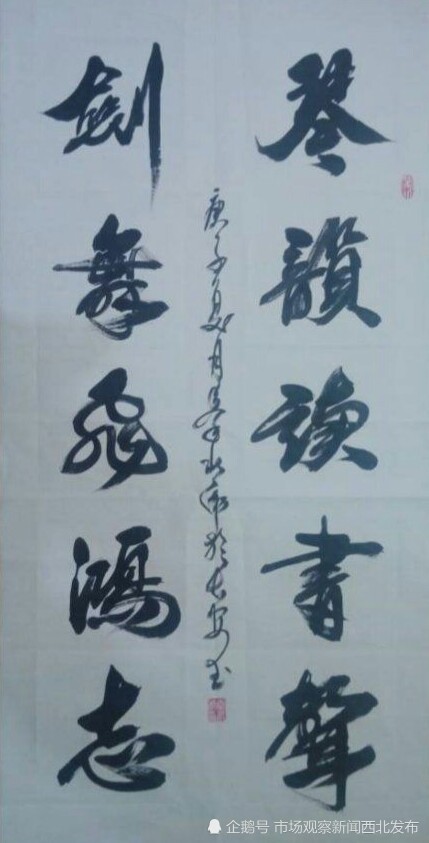 琴韻讀書聲
劍舞飛鴻志
庚子夏月
於長安書
企鹅号 市场观察新闻西北发布